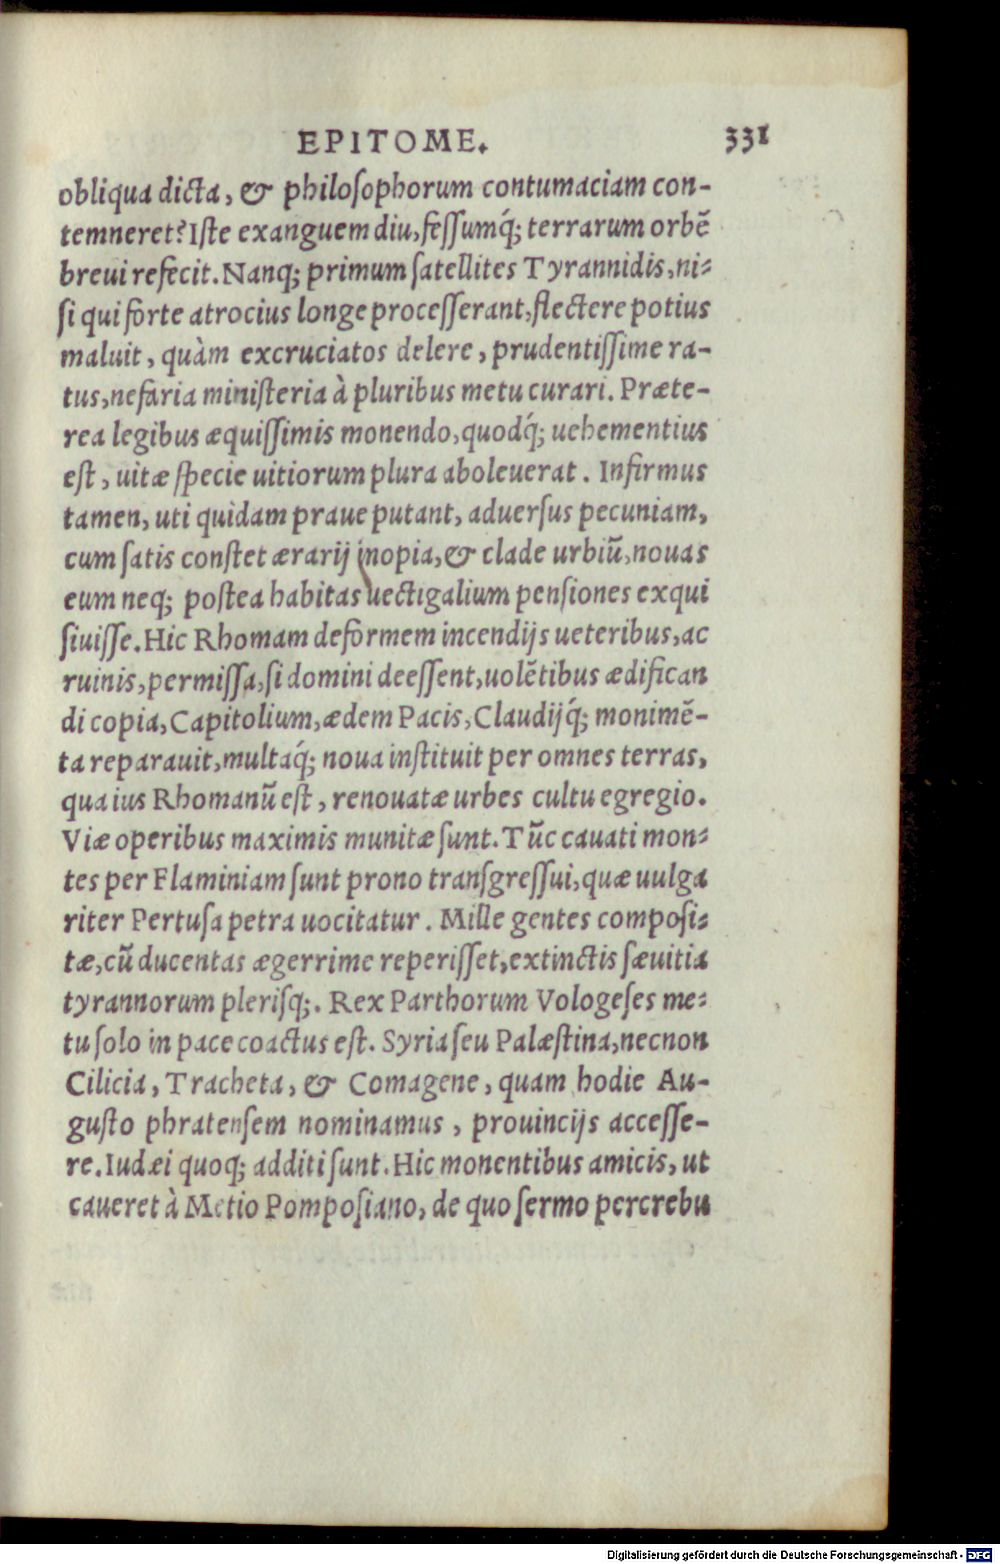 EPITOME. 331
obliqua dicta, & philoſophorum contumaciam con-
temneret? Iſte exanguem diu, feſſumq́; terrarum orbē
breui refecit. Nanq; primum ſatellites Tyrannidis, ni-
ſi qui forte atrocius longe proceſſerant, flectere potius
maluit, quàm excruciatos delere, prudentiſſime ra-
tus, nefaria miniſteria à pluribus metu curari. Præte-
rea legibus æquiſſimis monendo, quodq́; uehementius
eſt, uitæ ſpecie uitiorum plura aboleuerat. Infirmus
tamen, uti quidam praue putant, aduerſus pecuniam,
cum ſatis conſtet ærarij inopia, & clade urbiū, nouas
eum neq; poſtea habitas uectigalium penſiones exqui
ſiuiſſe. Hic Rhomam deformem incendijs ueteribus, ac
ruinis, permiſſa, ſi domini deeſſent, uolētibus ædifican
di copia, Capitolium, ædem Pacis, Claudijq́; monimē-
ta reparauit, multaq́; noua inſtituit per omnes terras,
qua ius Rhomanū eſt, renouatæ urbes cultu egregio.
Viæ operibus maximis munitæ ſunt. Tūc cauati mon-
tes per Flaminiam ſunt prono tranſgreſſui, quæ uulga
riter Pertuſa petra uocitatur. Mille gentes compoſi-
tæ, cū ducentas ægerrime reperiſſet, extinctis ſæuitia
tyrannorum pleriſq;. Rex Parthorum Vologeſes me-
tu ſolo in pace coactus eſt. Syria ſeu Palæſtina, necnon
Cilicia, Tracheta, & Comagene, quam hodie Au-
guſto phratenſem nominamus, prouincijs acceſſe-
re. Iudæi quoq; additi ſunt. Hic monentibus amicis, ut
caueret à Metio Pompoſiano, de quo ſermo percrebu
Digitalisierung gefördert durch die Deutsche Forschungsgemeinschaft - DFG